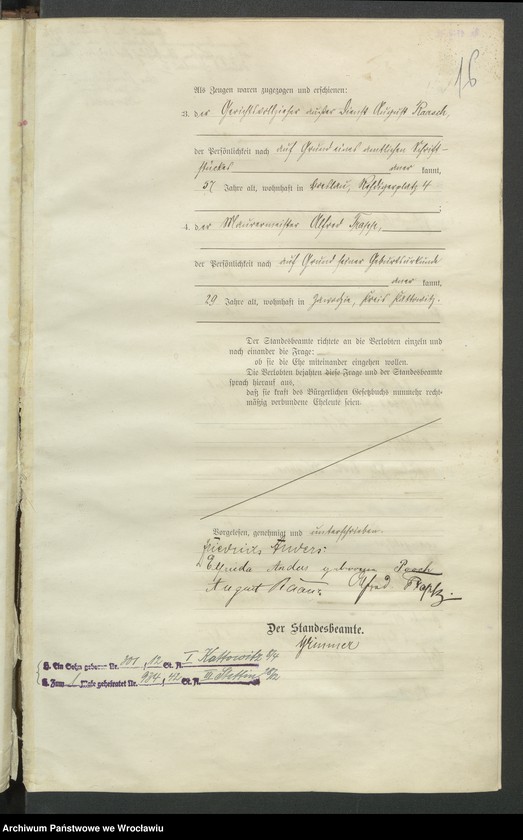 16
Als Zeugen waren zugezogen und erschienen:
3. der Gerichtsvollzieher außer Dienst August Raasch,
der Persönlichkeit nach auf Grund eines amtlichen Schrift-
stückes aner kannt,
57 Jahre alt, wohnhaft in Breslau, 4
;
4. der Maurermeister Alfred
der Persönlichkeit nach auf Grund seiner Geburtsurkunde
aner kannt,
29 Jahre alt, wohnhaft in Kreis Kattowitz.
Der Standesbeamte richtete an die Verlobten einzeln und
nach einander die Frage:
ob sie die Ehe miteinander eingehen wollen.
Die Verlobten bejahten diese Frage und der Standesbeamte
sprach hierauf aus,
daß sie kraft des Bürgerlichen Gesetzbuchs nunmehr recht-
mäßig verbundene Eheleute seien.
Vorgelesen, genehmigt und unterschrieben.
Friedrich Anders.
Elfrieda Anders geborene
August Alfred
Der Standesbeamte.
Ein Sohn geboren Nr. St. A. I Kattowitz
Zum 1 Male geheiratet Nr. 984, 42 St. A. III Stettin
Archiwum Państwowe we Wrocławiu